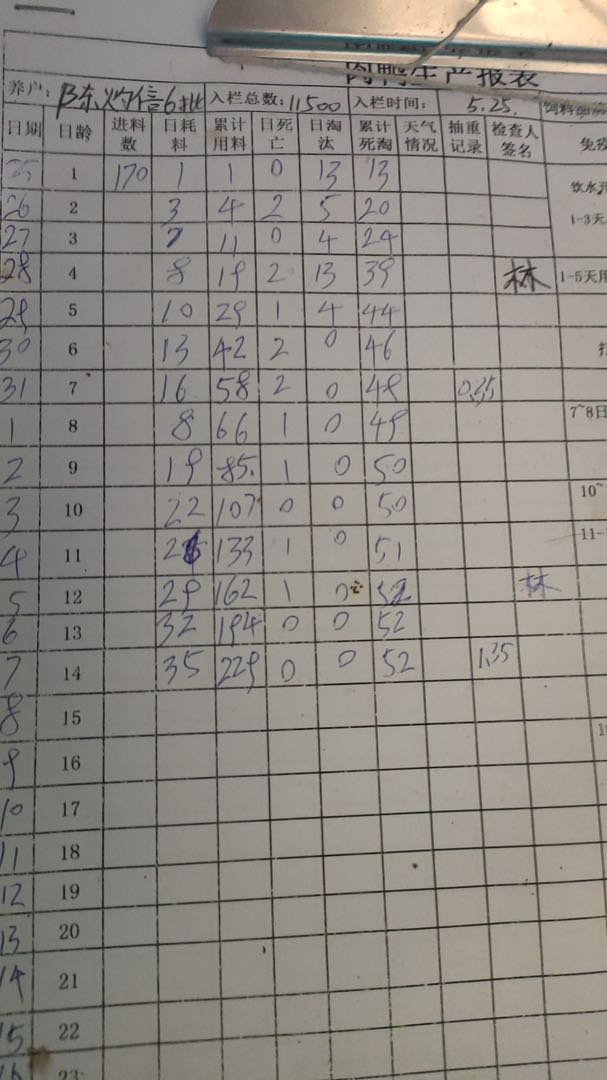 肉鸭生产报表
养户: 陈灼信6批 入栏总数: 11500 入栏时间: 5.25.
日期 日龄 进料数 日耗料 累计用料 日死亡 日淘汰 累计死淘 天气情况 抽重记录 检查人签名 免疫
25 1 170 1 1 0 13 13 饮水开
26 2 3 4 2 5 20 1-3天
27 3 7 11 0 4 24
28 4 8 19 2 13 39 林 1-5天用
29 5 10 29 1 4 44
30 6 13 42 2 0 46
31 7 16 58 2 0 48 0.35
1 8 8 66 1 0 49 7~8日
2 9 19 85. 1 0 50
3 10 22 107 0 0 50 10~
4 11 26 133 1 0 51 11-
5 12 29 162 1 0 52 林
6 13 32 194 0 0 52
7 14 35 229 0 0 52 1.35
8 15
9 16
10 17
11 18
12 19
13 20
14 21
15 22
16 23